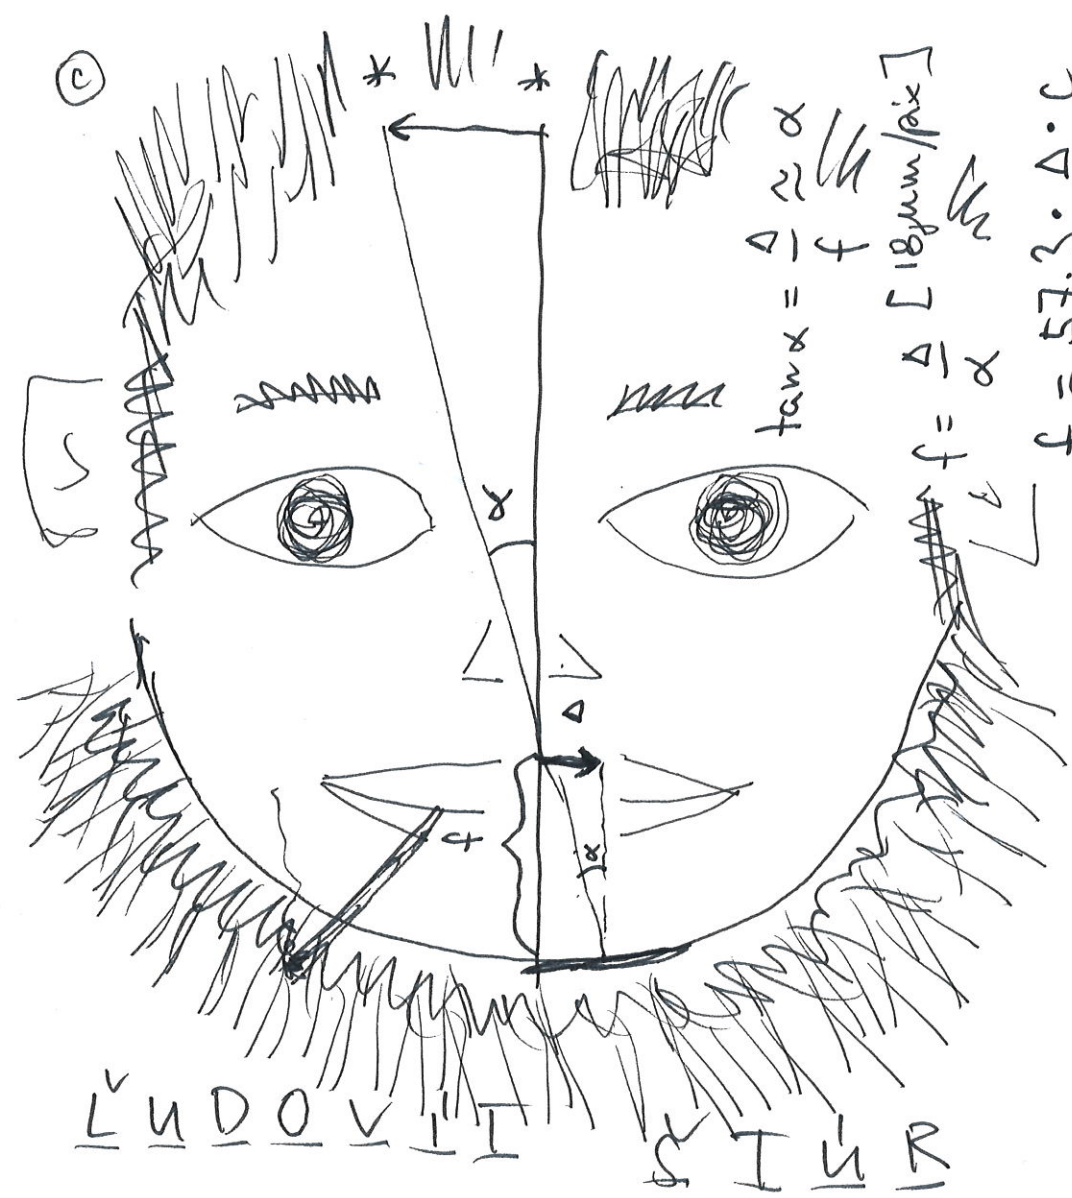 ©
* *
tan α = Δ/f ≈ α
f = Δ/α [18 μm/pix]
f = 57.3 · Δ ·
α
Δ
f
α
ĽUDOVÍT ŠTÚR